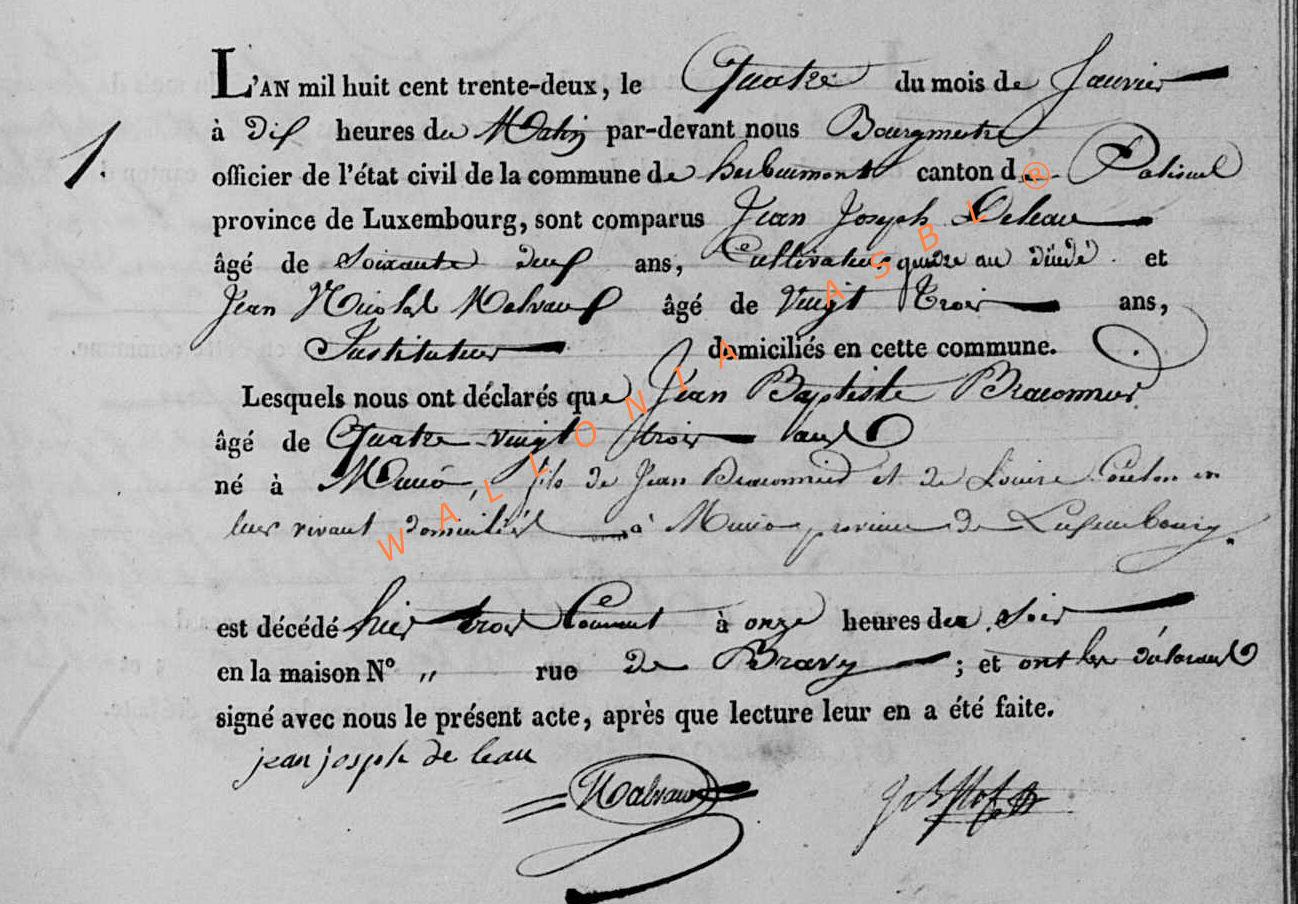 L'AN mil huit cent trente-deux, le Quatre du mois de Janvier
1. à Dix heures du Matin par-devant nous Bourgmestre
officier de l'état civil de la commune de herbeumont canton de Paliseul
province de Luxembourg, sont comparus Jean Joseph Deleau
âgé de Soixante deux ans, Cultivateur et
Jean Nicolas Malvaux âgé de Vingt Trois ans,
Instituteur domiciliés en cette commune.
Lesquels nous ont déclarés que Jean Baptiste Braconnier
âgé de Quatre vingt trois ans
né à Muno, fils de Jean Braconnier et de Louise en
leur vivant domiciliés à Muno province de Luxembourg.
est décédé hier trois Courant à onze heures du Soir
en la maison N° " rue de Bravy ; et ont les déclarants
signé avec nous le présent acte, après que lecture leur en a été faite.
jean joseph de leau
Malvaux
WALLONIA ASBL ®